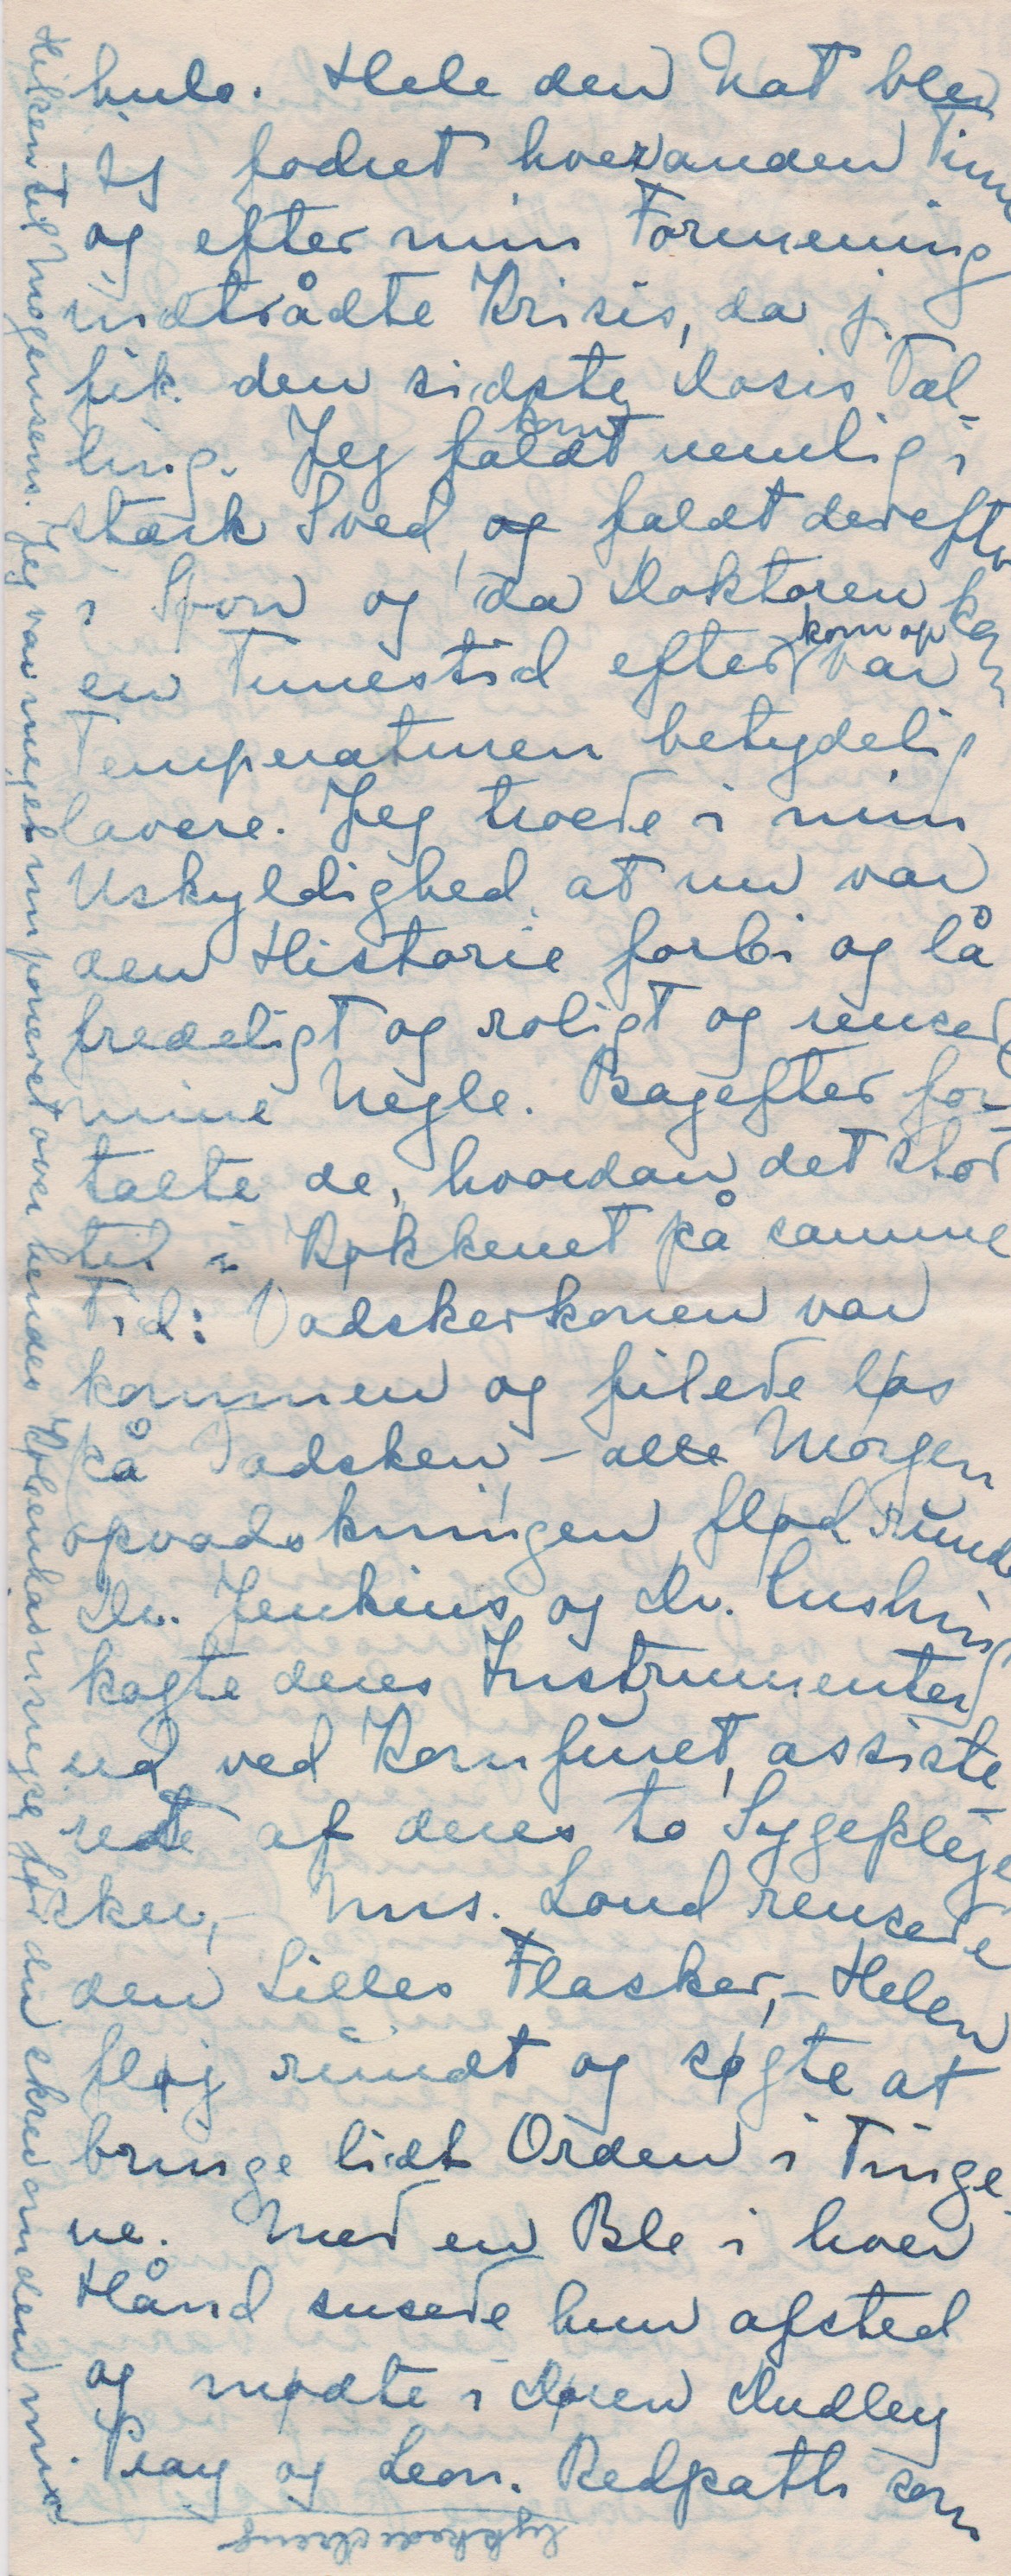 hulo. Hele den Nat blev
jeg fodret hveranden Time
og efter min Formening
indtrådte Krisis, da j.
fik den sidste Dosis Tæl-
ling. Jeg faldt kom nemlig i
stærk Sved, og faldt derefter
i Søvn og da Doktoren kom
en Timestid efter kom op var
Temperaturen betydelig
lavere. Jeg troede i min
Uskyldighed, at nu var
den Historie forbi og lå
fredeligt og roligt og rensed
mine Negle. Bagefter for-
talte de, hvordan det stod
til i Køkkenet på samme
Tid: Vadskerkonen var
kommen og filede løs
på Vadsken, – alle Morgen
opvadskningen flød rundt
Dr. Jenkins og Dr. Cushing
kogte deres Instrumenter
ud ved Komfuret, assiste-
ret af deres to Sygepleje-
sker, – Mrs. Loud rensede
den Lilles Flasker, – Helen
fløj rundt og søgte at
bringe lidt Orden i Tinge-
ne. Med en Ble i hver
Hånd susede hun afsted
og mødte i Døren Dudley
Pray og Leon. Redpath som
til Mogensens. Jeg var meget imponeret over hendes før du skrev om den min
lykkede dreng